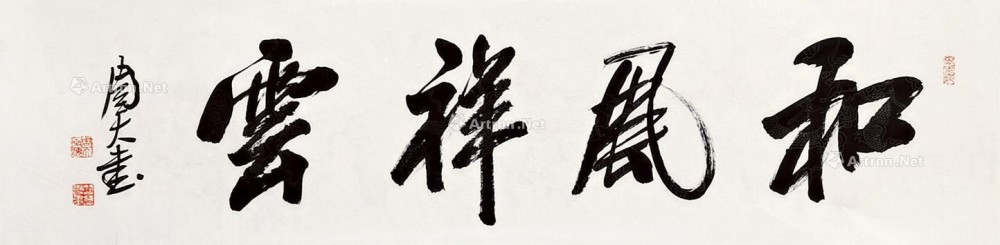 和風祥雲
周大書
Artron.Net
Artron.Net
Artron.Net